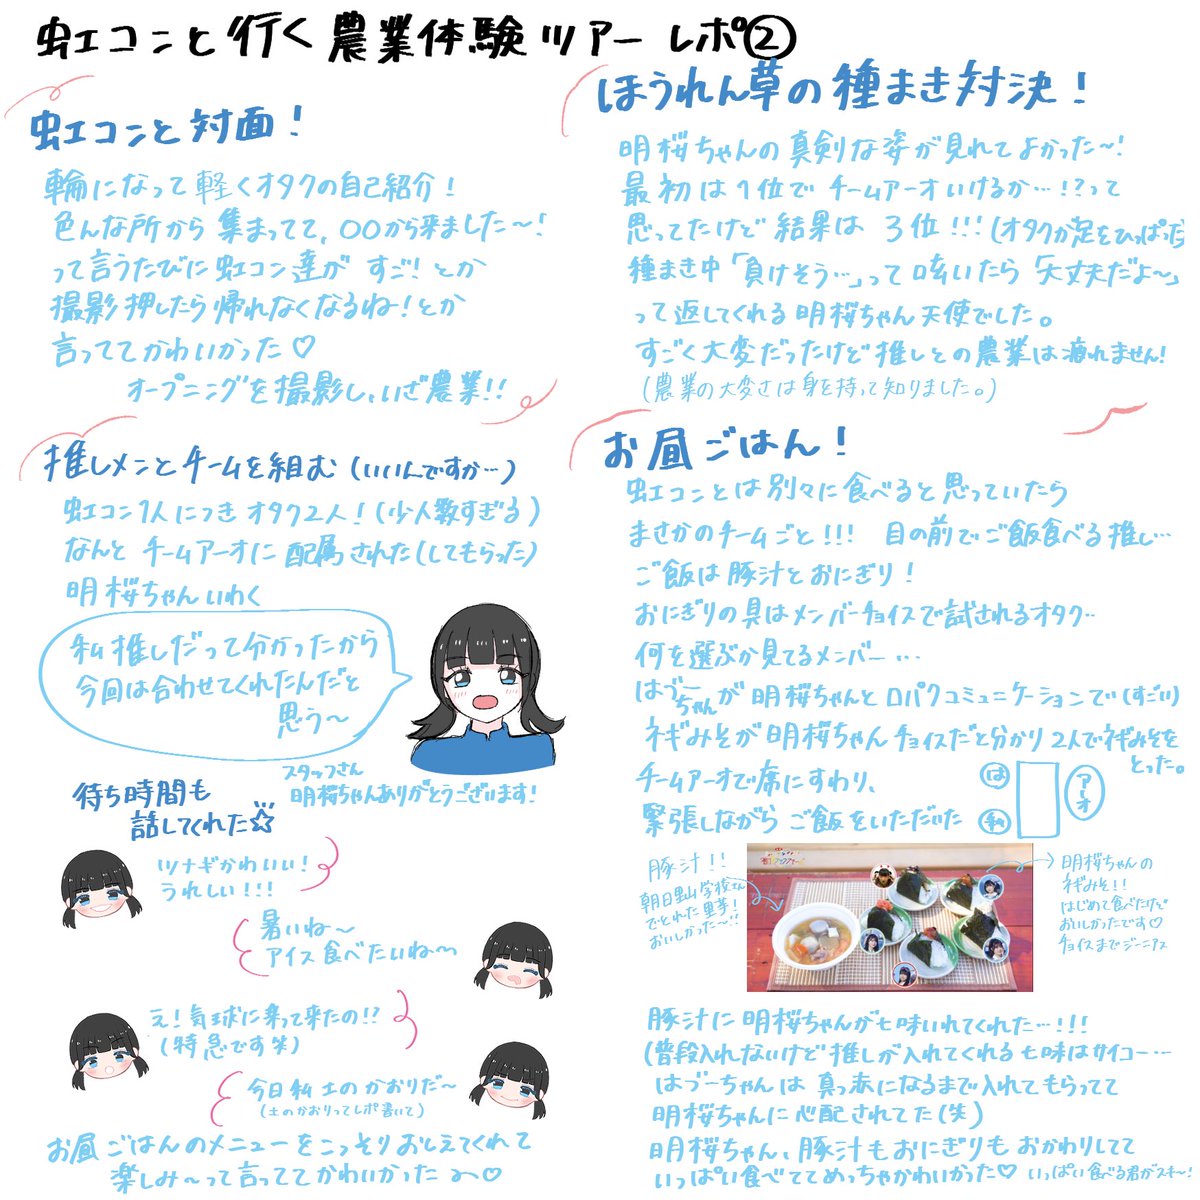 虹コンと行く農業体験ツアー レポ②
虹コンと対面！
輪になって軽くオタクの自己紹介！
色んな所から集まってて、〇〇から来ました〜！
って言うたびに虹コン達が すご！とか
撮影押したら帰れなくなるね！とか
言っててかわいかった♡
オープニングを撮影し、いざ農業！！
推しメンとチームを組む（いいんですか…）
虹コン1人につきオタク2人！（少人数すぎる）
なんと チームアーオに配属された（してもらった）
明桜ちゃんいわく
私推しだって分かったから
今回は合わせてくれたんだと
思う〜
スタッフさん
明桜ちゃんありがとうございます！
待ち時間も
話してくれた☆
ツナギかわいい！
うれしい！！！
暑いね〜
アイス食べたいね〜
え！気球に乗って来たの！？
（特急です笑）
今日私土のかおりだ〜
（土のかおりってレポ書いて）
お昼ごはんのメニューをこっそりおしえてくれて
楽しみ〜って言っててかわいかった〜♡
ほうれん草の種まき対決！
明桜ちゃんの真剣な姿が見れてよかった〜！
最初は1位でチームアーオいけるか…！？って
思ってたけど結果は 3位！！！（オタクが足をひっぱった）
種まき中「負けそう…」って呟いたら「大丈夫だよ〜」
って返してくれる明桜ちゃん天使でした。
すごく大変だったけど推しとの農業は痺れません！
（農業の大変さは身を持って知りました。）
お昼ごはん！
虹コンとは別々に食べると思っていたら
まさかのチームごと！！！ 目の前でご飯食べる推し…
ご飯は豚汁とおにぎり！
おにぎりの具はメンバーチョイスで試されるオタク…
何を選ぶか見てるメンバー…
はづーちゃんが明桜ちゃんと口パクコミュニケーションで（すごい）
ネギみそが明桜ちゃんチョイスだと分かり2人でネギみそを
とった。
チームアーオで席にすわり、
緊張しながら ご飯をいただいた
は
私
アーオ
豚汁！！
朝日里山学校さん
でとれた里芋！
おいしかった〜！！
明桜ちゃんの
ネギみそ！！
はじめて食べたけど
おいしかったです♡
チョイスまでジーニアス
豚汁に明桜ちゃんが七味いれてくれた…！！！
（普段入れないけど推しが入れてくれる七味はサイコー…
はづーちゃんは 真っ赤になるまで入れてもらってて
明桜ちゃんに心配されてた（笑）
明桜ちゃん、豚汁もおにぎりも おかわりしてて
いっぱい食べててめっちゃかわいかった♡ いっぱい食べる君がスキ〜！